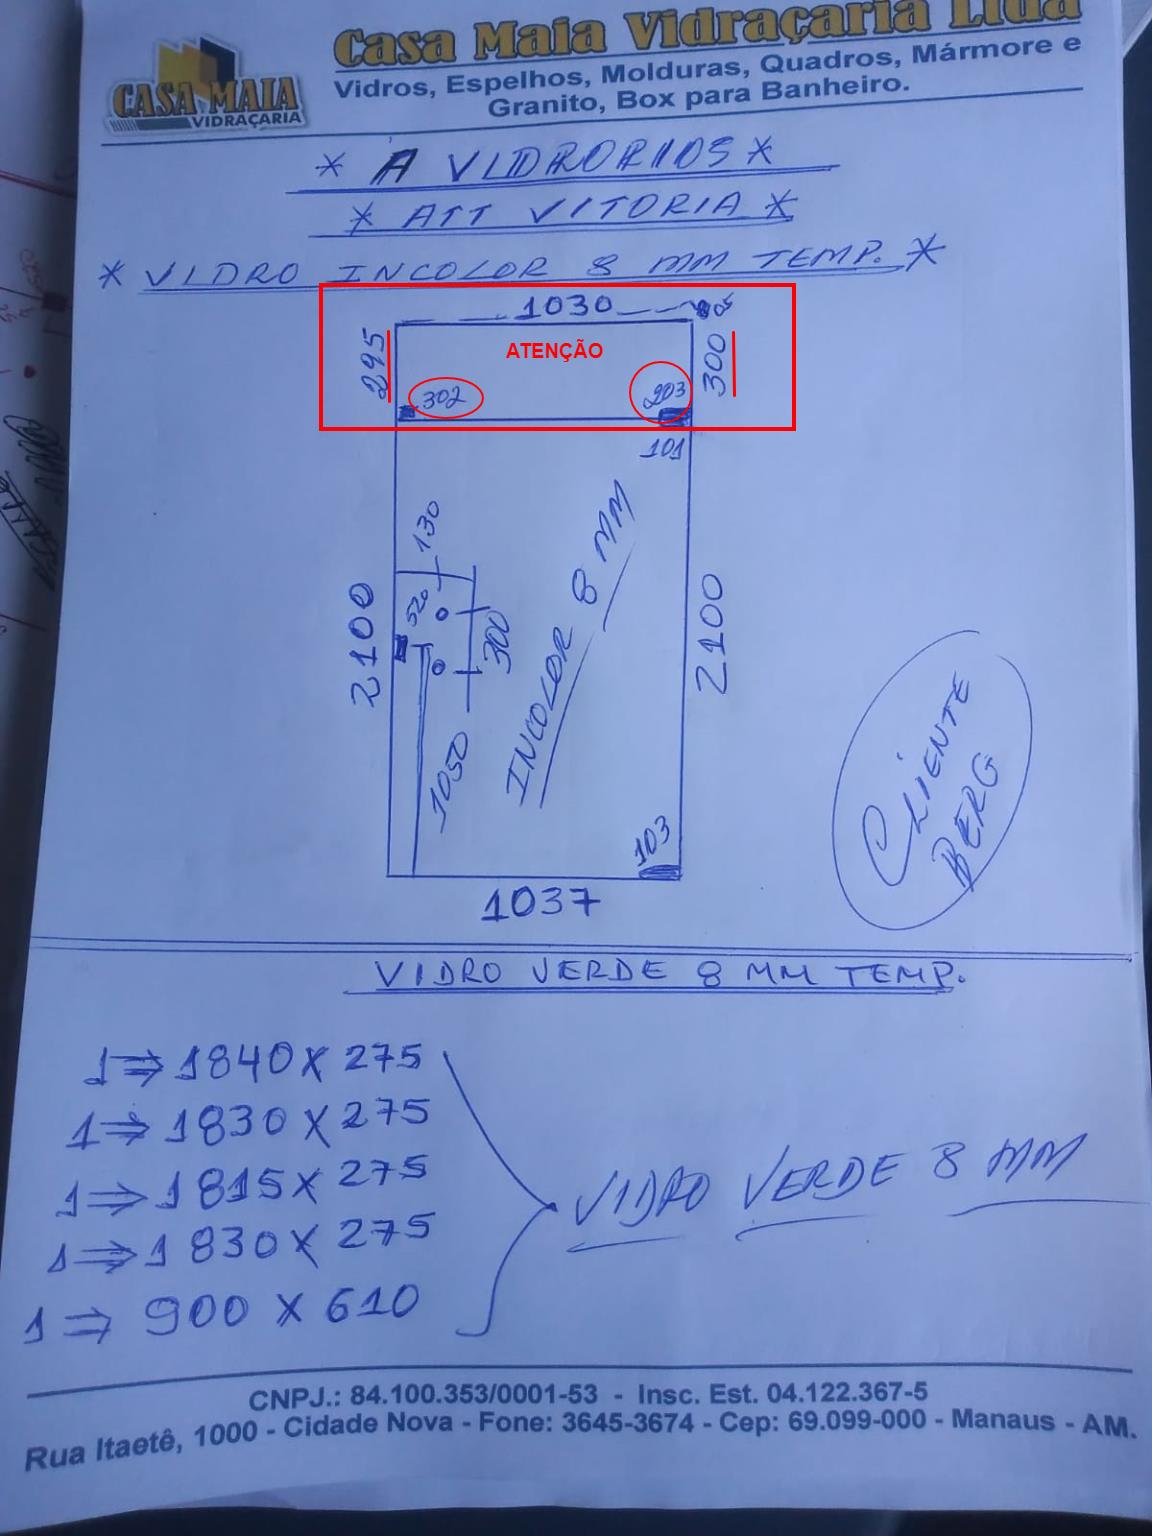 Casa Maia Vidraçaria Ltda
CASA MAIA
VIDRAÇARIA
Vidros, Espelhos, Molduras, Quadros, Mármore e
Granito, Box para Banheiro.
* A VIDRORIOS *
* ATT VITORIA *
* VIDRO INCOLOR 8 MM TEMP. *
1030
295
ATENÇÃO
300
302
203
101
130
520
300
2100
INCOLOR 8 MM
2100
1050
103
1037
CLIENTE
BERG
VIDRO VERDE 8 MM TEMP.
1 ⇒ 1840 X 275
1 ⇒ 1830 X 275
1 ⇒ 1815 X 275
1 ⇒ 1830 X 275
1 ⇒ 900 X 610
VIDRO VERDE 8 MM
CNPJ.: 84.100.353/0001-53 - Insc. Est. 04.122.367-5
Rua Itaetê, 1000 - Cidade Nova - Fone: 3645-3674 - Cep: 69.099-000 - Manaus - AM.